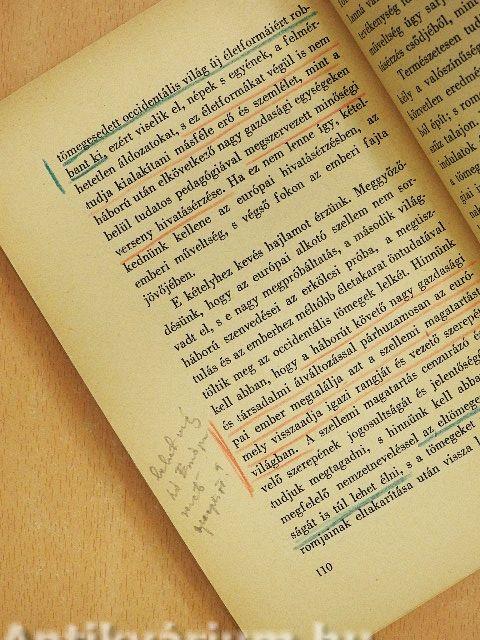 tömegesedett occidentális világ új életformáiért rob-
bant ki, ezért viselik el, népek s egyének, a felmér-
hetetlen áldozatokat, s ez életformákat végül is nem
tudja kialakítani másféle erő és szemlélet, mint a
háború után elkövetkező nagy gazdasági egységeken
belül tudatos pedagógiával megszervezett minőségi
verseny hivatásérzése. Ha ez nem lenne így, kétel-
kednünk kellene az európai hivatásérzésben, az
emberi műveltség, s végső fokon az emberi fajta
jövőjében.
E kételyhez kevés hajlamot érzünk. Meggyőző-
désünk, hogy az európai alkotó szellem nem sor-
vadt el, s e nagy megpróbáltatás, a második világ-
háború szenvedései az erkölcsi próba, a megtisz-
tulás és az emberhez méltóbb életakarat öntudatával
töltik meg az occidentális tömegek lelkét. Hinnünk
kell abban, hogy a háborút követő nagy gazdasági
és társadalmi átváltozással párhuzamosan az euró-
pai ember megtalálja azt a szellemi magatartást
mely visszaadja igazi rangját és vezető szerepét
világban. A szellemi magatartás cenzurázó és
velő szerepének jogosultságát és jelentőségé
tudjuk megtagadni, s hinnünk kell abba
megfelelő nemzetneveléssel az eltömege
ságát is túl lehet élni, s a tömegeket
romjainak eltakarítása után vissza l
110
lamá va
tevékenység fo
műveltség úgy sarj
tásérzés csődjéből, min
Természetesen tudj
kely a valószínűség
közvetlen eredmé
ból épít; s rom
szűz talajon.
indulatok
a tömeg
Antikvárium.hu